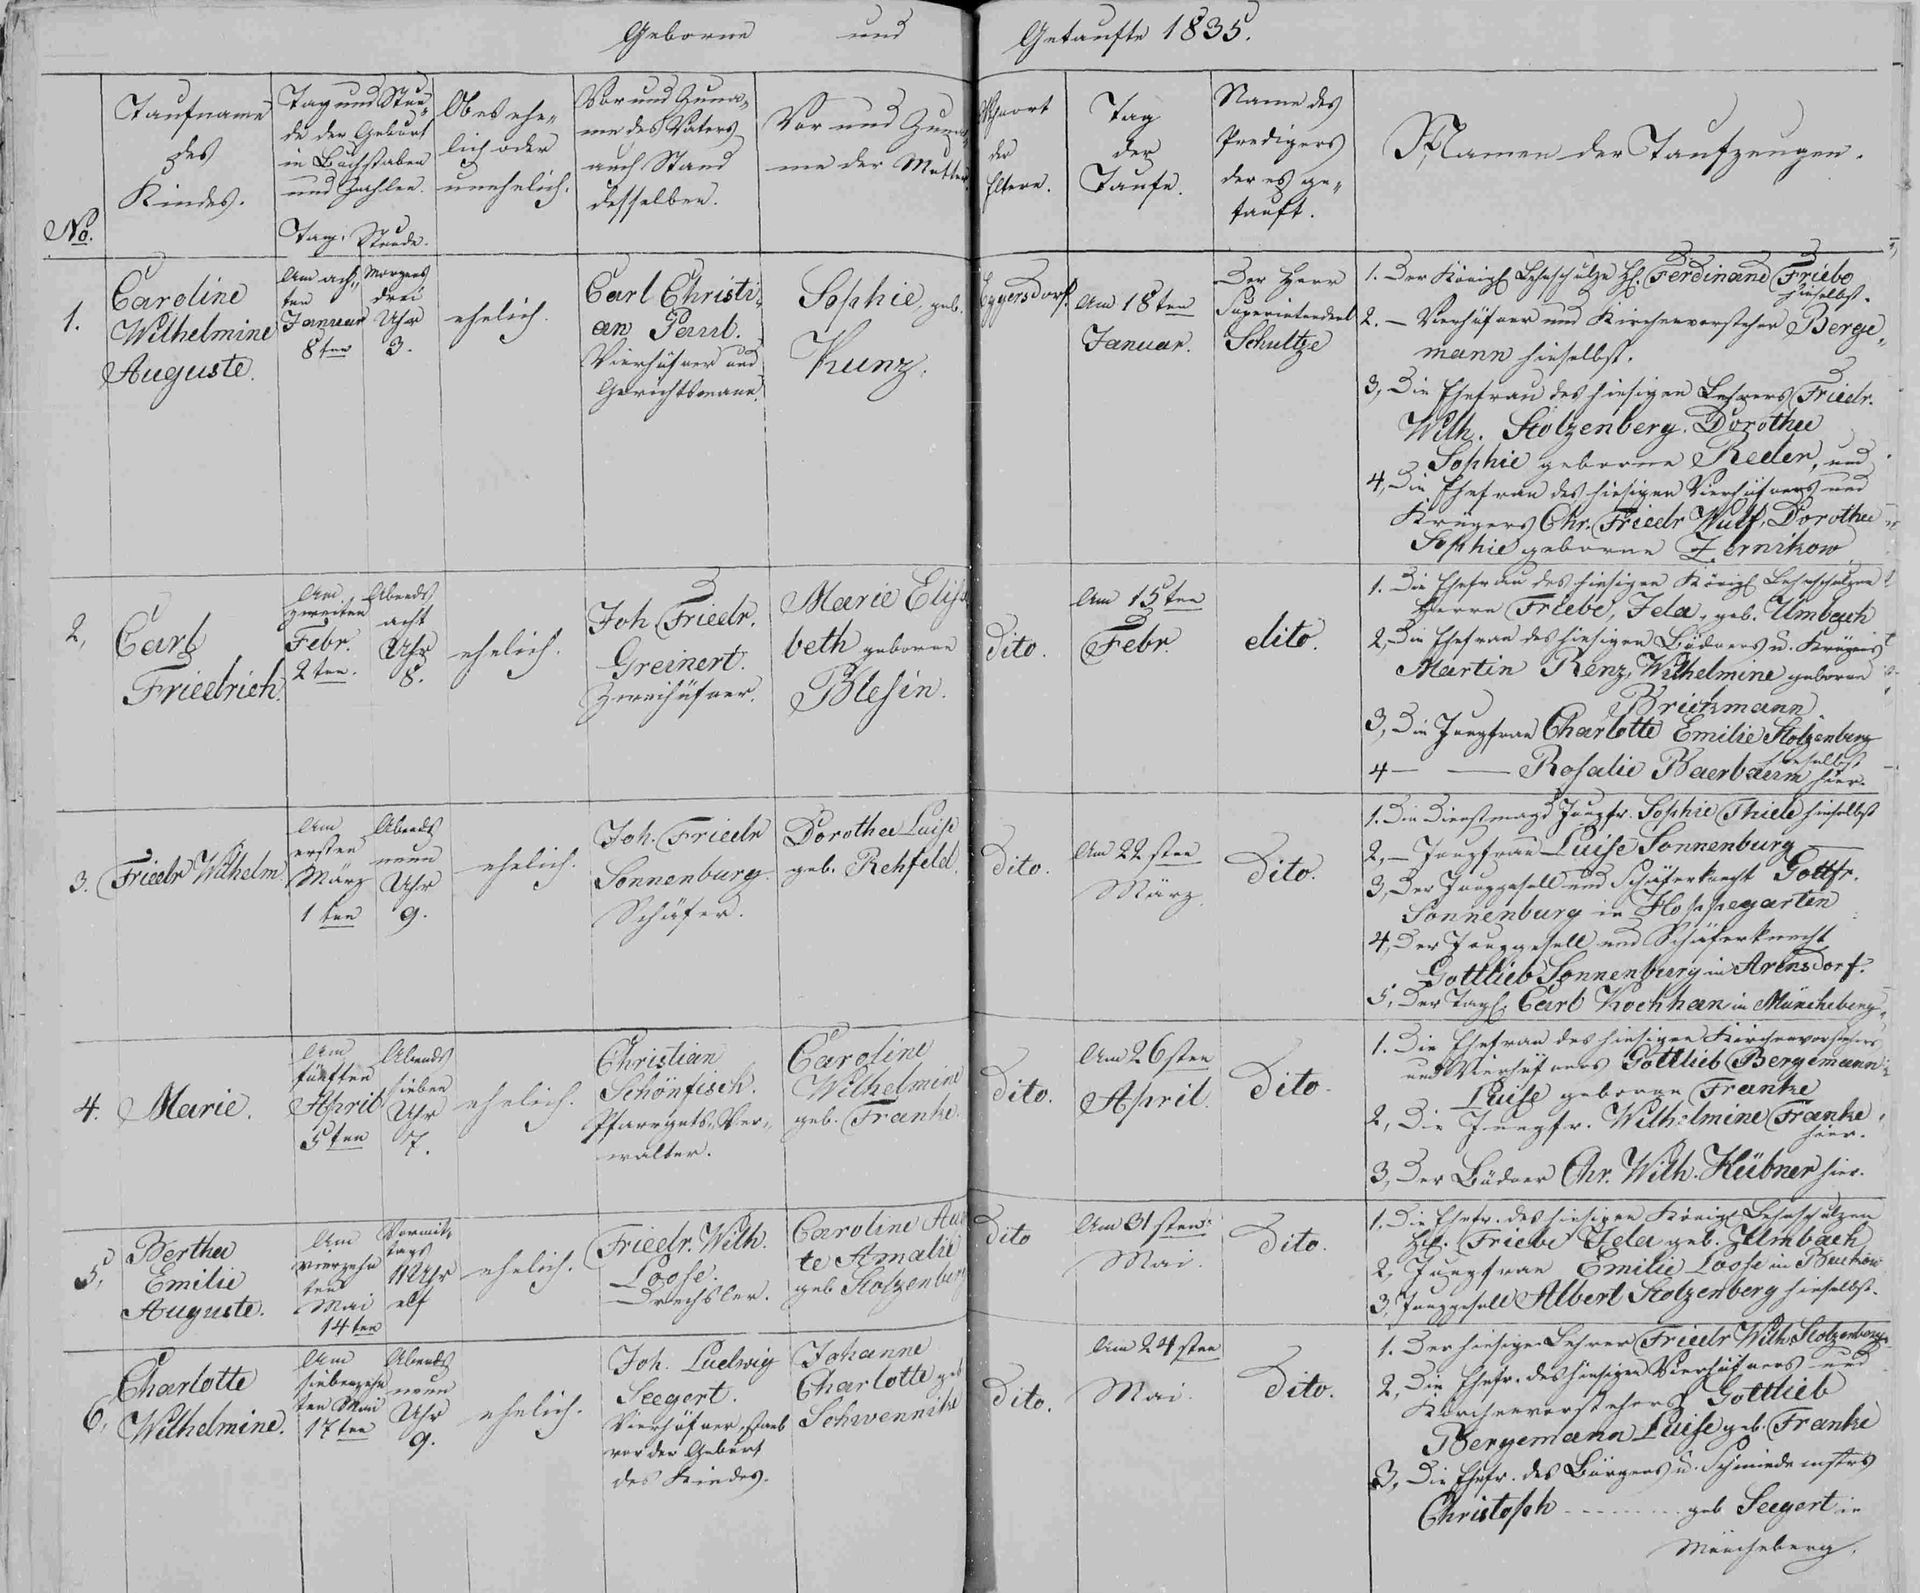 Geborne und Getaufte 1835.
No.
Taufname
des
Kindes.
Tag und Stun-
de der Geburt
in Buchstaben
und Zahlen.
Tag. Stunde.
Ob es ehe-
lich oder
unehelich.
Vor und Zuna-
me des Vaters
auch Stand
desselben.
Vor und Zuna-
me der Mutter
Wohnort
der
Eltern.
Tag
der
Taufe.
Name des
Predigers
der es ge-
tauft.
Namen der Taufzeugen.
1.
Caroline
Wilhelmine
Auguste.
Am ach-
ten
Januar
8ten
Morgens
drei
Uhr
3.
ehelich.
Carl Christi-
an
Vierhüfner und
Gerichtsmann.
Sophie, geb.
Kunz.
Eggersdorf.
Am 18ten
Januar.
Der Herr
Superintendent
Schultze
1. Der Königl. Lehnschulze H. Ferdinand Friebe
hieselbst.
2. — Vierhüfner und Kirchenvorsteher Berge-
mann hieselbst.
3, Die Ehefrau des hiesigen Lehrers Friedr.
Wilh. Stolzenberg. Dorothee
Sophie geborne Reder, und
4, Die Ehefrau des hiesigen Vierhüfners und
Krügers Chr. Friedr Wulf, Dorothee
Sophie geborne Zernikow
2,
Carl
Friedrich.
Am
zweiten
Febr.
2ten.
Abends
acht
Uhr
8.
ehelich.
Joh Friedr.
Greinert.
Zweihüfner.
Marie Elisa
beth geborne
Blesin.
Dito.
Am 15ten
Febr.
dito.
1. Die Ehefrau des hiesigen Königl Lehnschulzen
Herrn Friebe, Ida, geb. Umbach
2, Die Ehefrau des hiesigen Büdners u. Krügers
Martin Renz, Wilhelmine geborne
Brietzmann
3, Die Jungfrau Charlotte Emilie Stolzenberg
hieselbst
4 — — Rosalie Baerbaum hier.
3.
Friedr Wilhelm
Am
ersten
März
1ten
Abends
neun
Uhr
9.
ehelich.
Joh. Friedr
Sonnenburg.
Schäfer.
Dorothee Luise
geb. Rehfeld.
Dito.
Am 22sten
März.
Dito.
1. Die Dienstmagd Jungfr. Sophie Thiele hieselbst
2, — Jungfrau Luise Sonnenburg —
3, Der Junggesell und Schäferknecht Gottfr.
Sonnenburg in Hoppegarten
4, Der Junggesell und Schäferknecht
Gottlieb Sonnenburg in Arensdorf.
5, Der Tagl. Carl Kochhan in Müncheberg.
4.
Marie.
Am
fünften
April
5ten
Abends
sieben
Uhr
7.
ehelich.
Christian
Schönfisch.
Pfarrguts-Ver-
walter.
Caroline
Wilhelmine
geb. Franke.
Dito.
Am 26sten
April.
Dito.
1. Die Ehefrau des hiesigen Kirchenvorstehers
und Vierhüfners Gottlieb Bergemann
Luise geborne Franke
2, Die Jungfr. Wilhelmine Franke
hier.
3, Der Büdner Chr. Wilh. Hübner hier.
5,
Berthe
Emilie
Auguste.
Am
vierzehn
ten
Mai
14ten
Vormit-
tags
11 Uhr
elf
ehelich.
Friedr. Wilh.
Loose.
Drechsler.
Caroline Au
te Amalie
geb Stolzenburg
Dito
Am 31sten
Mai.
Dito.
1. Die Ehefr. des hiesigen Königl Lehnschulzen
H. Friebe Ida geb. Umbach
2, Jungfrau Emilie Loose in Buckow
3, Junggesell Albert Stolzenberg hieselbst.
6,
Charlotte
Wilhelmine.
Am
siebenzehn
ten Mai
17ten
Abends
neun
Uhr
9.
ehelich.
Joh. Ludwig
Seegert.
Vierhüfner, starb
vor der Geburt
des Kindes.
Johanne
Charlotte geb
Schwennike
Dito.
Am 24sten
Mai.
Dito.
1. Der hiesige Lehrer Friedr Wilh. Stolzenberg.
2, Die Ehefr. des hiesigen Vierhüfners und
Kirchenvorstehers Gottlieb
Bergemann Luise geb. Franke
3, Die Ehefr. des Bürgers u. Schmiedemstrs
Christoph - - - - - - - geb Seegert in
Müncheberg.